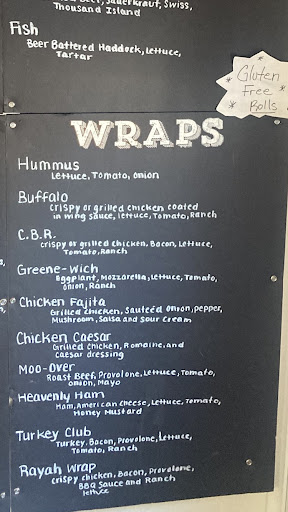 Sauerkraut, Swiss,
Thousand Island
Fish
Beer Battered Haddock, Lettuce,
Tartar
Gluten
Free
Rolls
WRAPS
Hummus
Lettuce, Tomato, onion
Buffalo
crispy or grilled chicken coated
in wing sauce, lettuce, Tomato, Ranch
C.B.R.
crispy or grilled chicken, Bacon, Lettuce,
Tomato, Ranch
Greene-Wich
Eggplant, Mozzarella, Lettuce, Tomato,
onion, Ranch
Chicken Fajita
Grilled chicken, Sautéed onion, pepper,
Mushroom, Salsa and Sour Cream
Chicken Caesar
Grilled chicken, Romaine, and
Caesar dressing
Moo-Over
Roast Beef, Provolone, Lettuce, Tomato,
onion, Mayo
Heavenly Ham
Ham, American cheese, Lettuce, Tomato,
Honey Mustard
Turkey Club
Turkey, Bacon, Provolone, Lettuce,
Tomato, Ranch
Rayah Wrap
crispy chicken, Bacon, Provolone,
BBQ Sauce and Ranch
lettuce